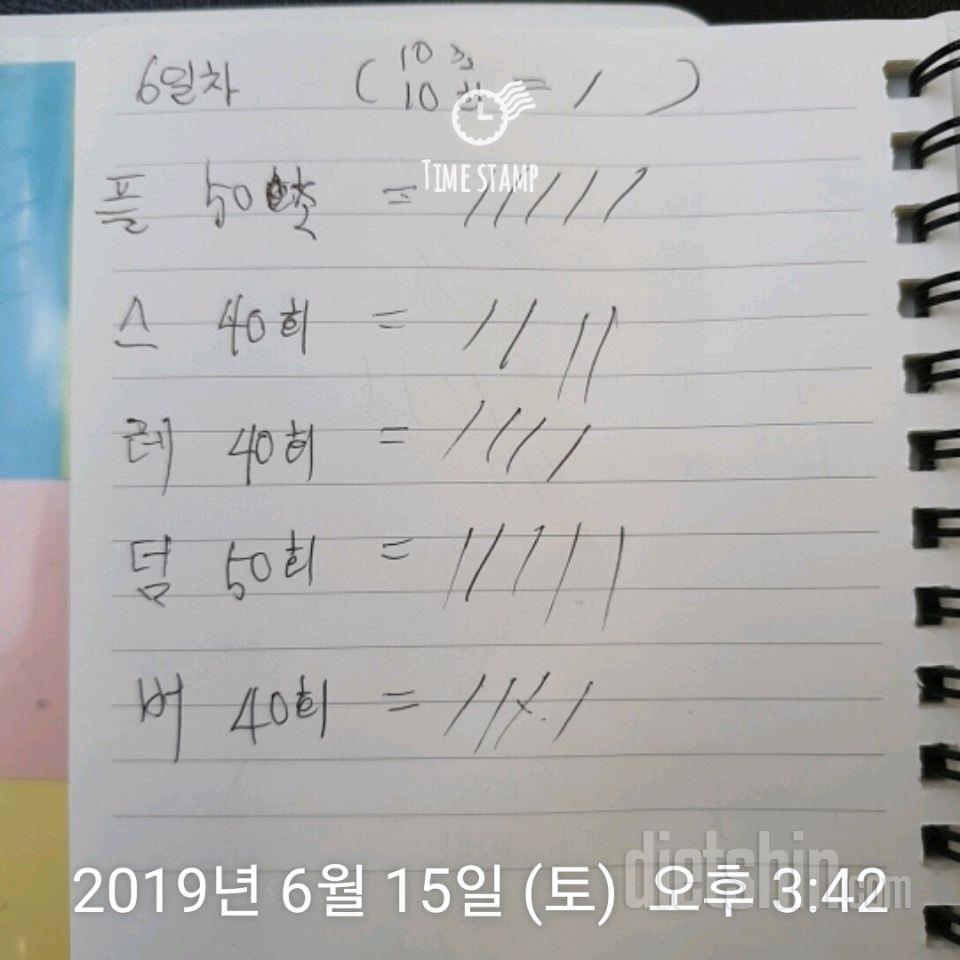 6일차 ( 10초
10회 = / )
TIME STAMP
플 50초 = / / / / /
스 40회 = / / / /
레 40회 = / / / /
덤 50회 = / / / / /
버 40회 = / / / /
dietshin.com
2019년 6월 15일 (토) 오후 3:42